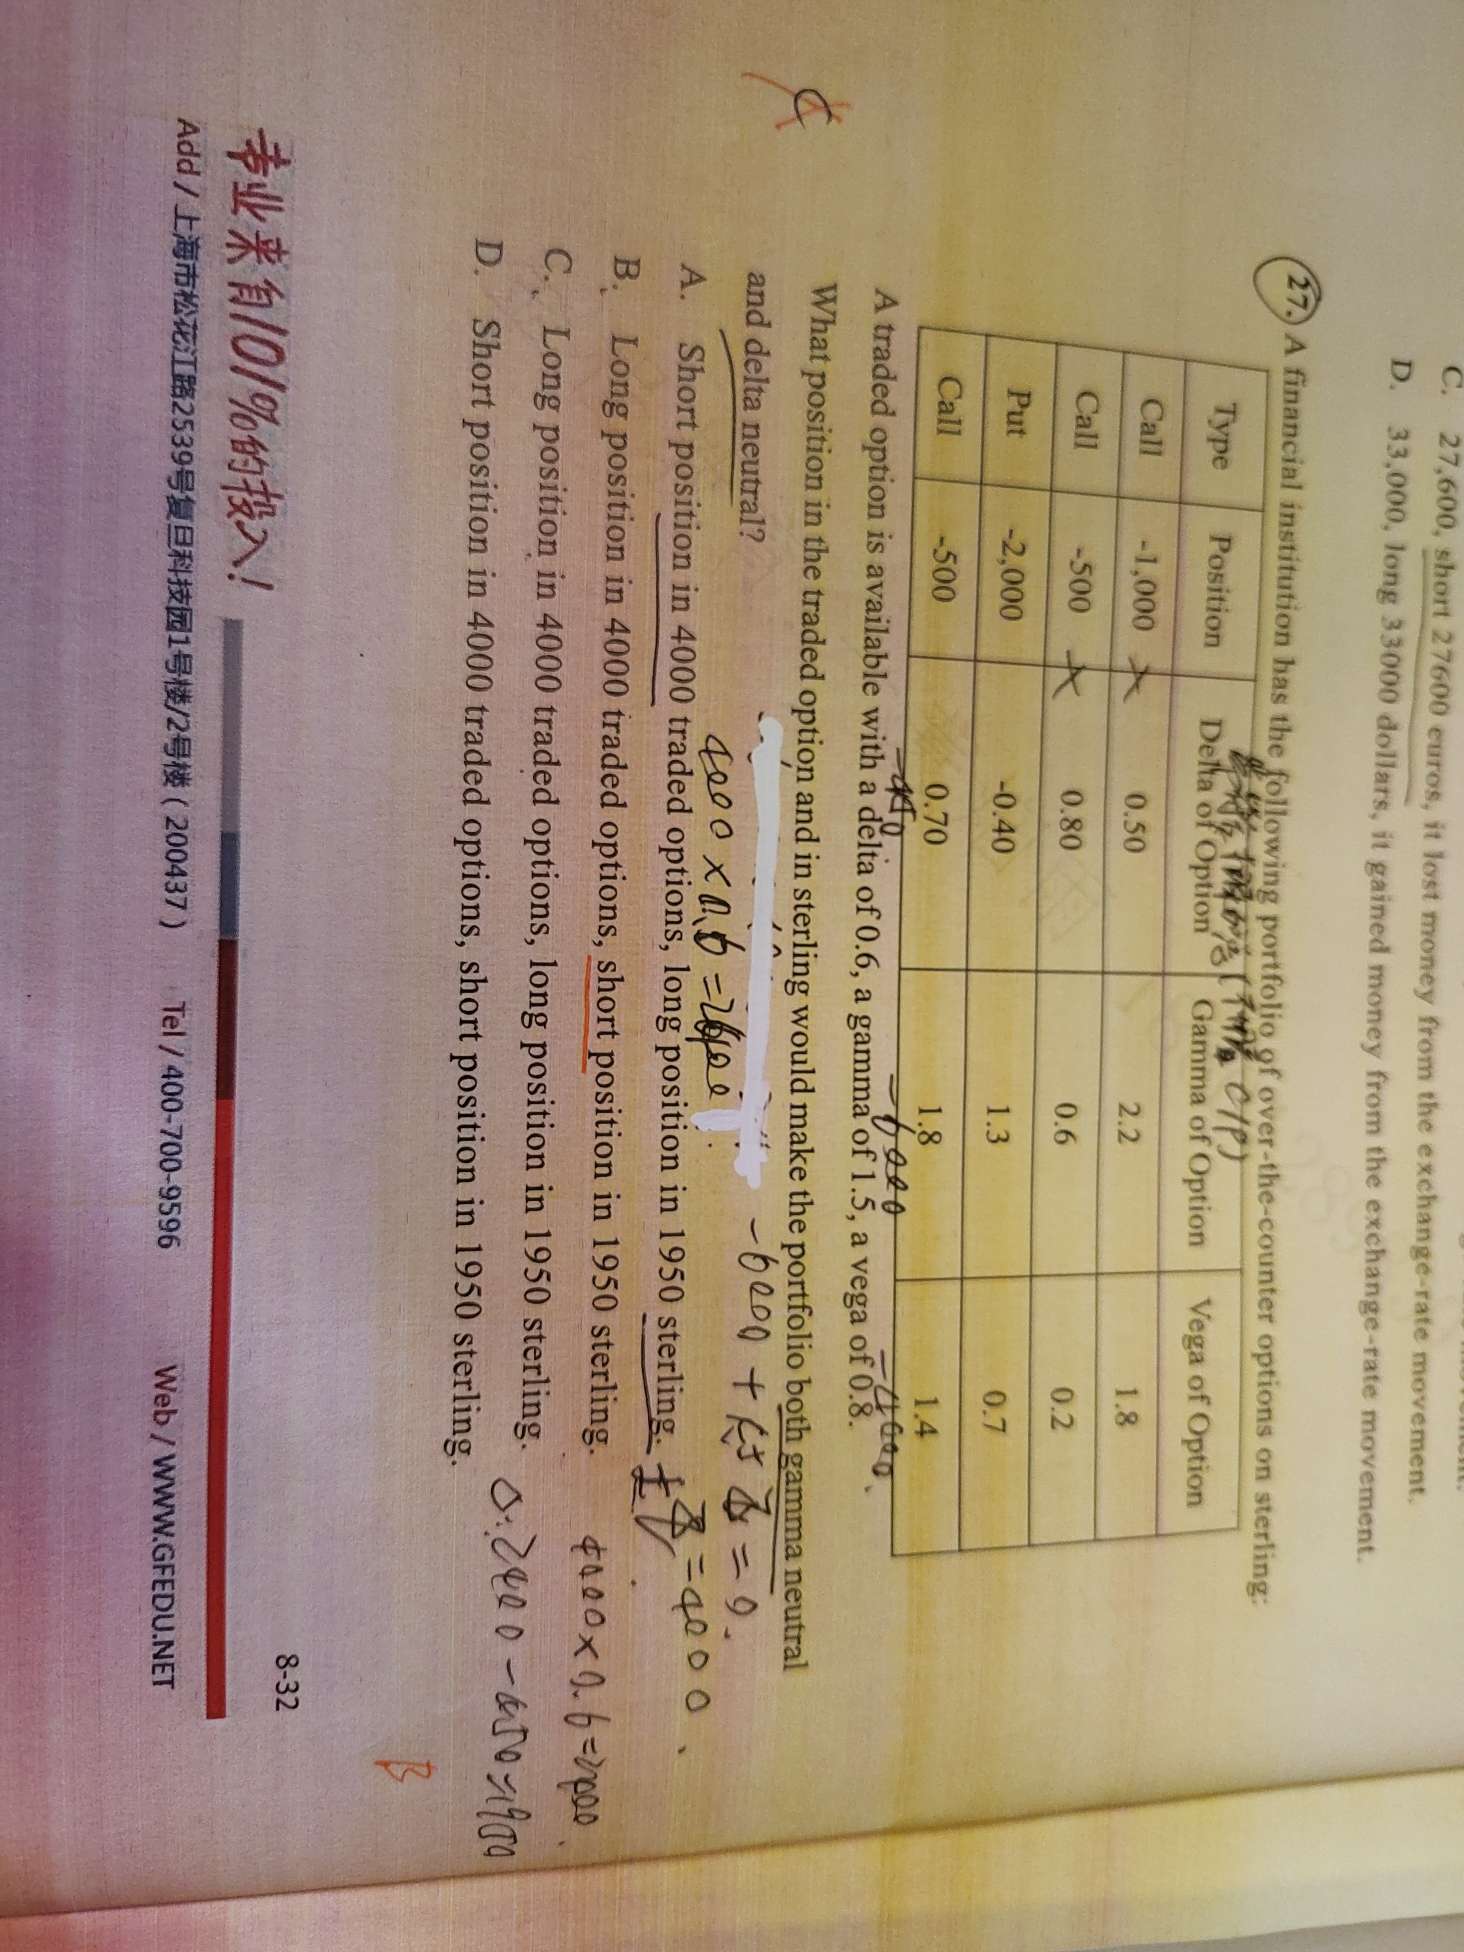 C. 27,600, short 27600 euros, it lost money from the exchange-rate movement.
D. 33,000, long 33000 dollars, it gained money from the exchange-rate movement.
27. A financial institution has the following portfolio of over-the-counter options on sterling:
Type Position Delta of Option Gamma of Option Vega of Option
Call -1,000 0.50 2.2 1.8
Call -500 0.80 0.6 0.2
Put -2,000 -0.40 1.3 0.7
Call -500 0.70 1.8 1.4
-450 -6000 -4000
A traded option is available with a delta of 0.6, a gamma of 1.5, a vega of 0.8.
What position in the traded option and in sterling would make the portfolio both gamma neutral
and delta neutral?
4000 × 0.6 = 2400
A. Short position in 4000 traded options, long position in 1950 sterling.
= 4000
B. Long position in 4000 traded options, short position in 1950 sterling.
4000 × 0.6 =
C. Long position in 4000 traded options, long position in 1950 sterling.
D. Short position in 4000 traded options, short position in 1950 sterling.
B
8-32
专业来自101%的投入!
Add / 上海市松花江路2539号复旦科技园1号楼/2号楼 ( 200437 ) Tel / 400-700-9596 Web / WWW.GFEDU.NET